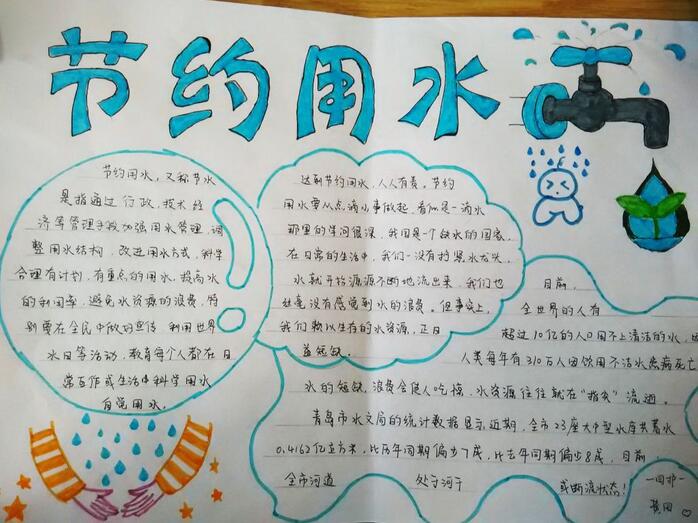 节约用水
节约用水，又称节水
是指通过行政、技术、经
济等管理手段加强用水管理，调
整用水结构，改进用水方式，科学
合理有计划，有重点的用水，提高水
的利用率，避免水资源的浪费。特
别要在全民中做好宣传，利用世界
水日等活动，教育每个人都在日
常工作或生活中科学用水
自觉用水。
达到节约用水，人人有责。节约
用水要从点滴小事做起，看似是一滴水
那里的学问很深，我国是个缺水的国家，
在日常的生活中，我们一没有拧紧水龙头，
水就开始源源不断地流出来，我们也
丝毫没有感觉到水的浪费。但事实上，
我们赖以生存的水资源，正日
益短缺。
目前，
全世界的人有
超过10亿的人口用不上清洁的水，
人类每年有310万人因饮用不洁水患病死亡
水的短缺，浪费会使人吃惊，水资源往往就在"指尖"流逝。
青岛市水文局的统计数据显示，近期，全市23座大中型水库共蓄水
0.4162亿立方米，比历年同期偏少7成，比去年同期偏少8成，目前
全市河道 处于河干 或断流状态！